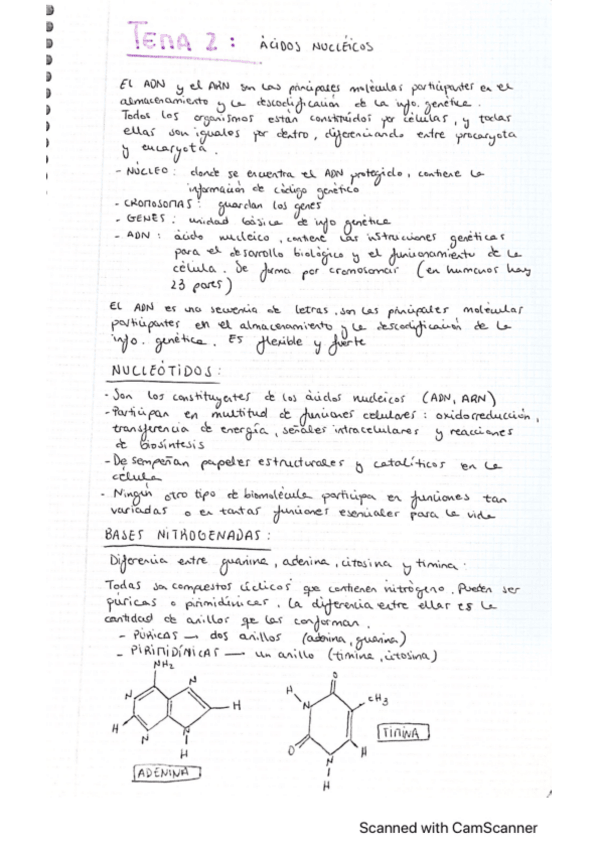 TEMA 2: ÁCIDOS NUCLÉICOS
EL ADN y el ARN son las principales moléculas participantes en el
almacenamiento y la descodificación de la info. genética.
Todos los organismos están constituidos por células, y todas
ellas son iguales por dentro, diferenciando entre procaryota
y eucaryota.
- NÚCLEO: donde se encuentra el ADN protegido, contiene la
información de código genético
- CROMOSOMAS: guardan los genes
- GENES: unidad básica de info genética
- ADN: ácido nucleico, contiene las instrucciones genéticas
para el desarrollo biológico y el funcionamiento de la
célula. Se forma por cromosomas (en humanos hay
23 pares)
EL ADN es una secuencia de letras. son las principales moléculas
participantes en el almacenamiento y la descodificación de la
info. genética. Es flexible y fuerte
NUCLEÓTIDOS:
- Son los constituyentes de los ácidos nucleicos (ADN, ARN)
- Participan en multitud de funciones celulares: oxidorreducción,
transferencia de energía, señales intracelulares y reacciones
de biosíntesis
- Desempeñan papeles estructurales y catalíticos en la
célula
- Ningún otro tipo de biomolécula participa en funciones tan
variadas o en tantas funciones esenciales para la vida
BASES NITROGENADAS:
Diferencia entre guanina, adenina, citosina y timina:
Todas son compuestos cíclicos que contienen nitrógeno. Pueden ser
púricas o pirimidínicas. La diferencia entre ellas es la
cantidad de anillos que las conforman.
- PÚRICAS → dos anillos (adenina, guanina)
- PIRIMIDÍNICAS → un anillo (timina, citosina)
NH2
N N H
H N N
H
ADENINA
O
H N CH3
O N H
H
TIMINA
Scanned with CamScanner